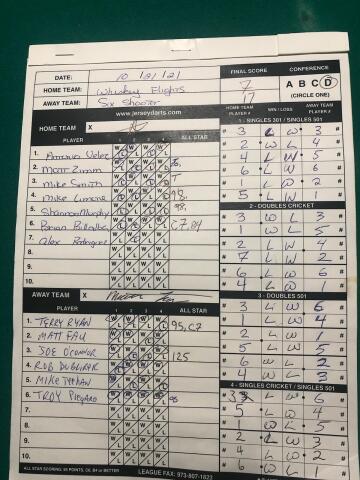 DATE: 10/21/21
HOME TEAM: Whiskey Flights
AWAY TEAM: Six Shooter
FINAL SCORE
7
17
CONFERENCE
A B C D
(CIRCLE ONE)
www.jerseydarts.com
HOME TEAM X
PLAYER 1 2 3 4 ALL STAR
1.
2. Matt Zimm
3. Mike Smith T
4. Mike
5. Shannon Murphy
6. C7, 84
7. Alex Rodriguez
8.
9.
10.
AWAY TEAM X
PLAYER 1 2 3 4 ALL STAR
1. TERRY RYAN 95, C7
2. MATT FALL
3. JOE O'CONNOR 125
4. ROB
5. MIKE
6. TROY
7.
8.
9.
10.
ALL STAR SCORING: 95 POINTS, C6, B4 or BETTER
LEAGUE FAX: 973-807-1823
HOME TEAM PLAYER # WIN / LOSS AWAY TEAM PLAYER #
1 - SINGLES 301 / SINGLES 501
# 3 L W 3 #
# 2 W L 4 #
# 4 L W 5 #
# 6 L W 6 #
# 1 L W 2 #
# 5 L W 1 #
2 - DOUBLES CRICKET
# 3 W L 3 #
# 1 W L 5 #
# 2 L W 4 #
# 7 L W 2 #
# 6 L W 6 #
# 4 L W 1 #
3 - DOUBLES 501
# 3 L W 6 #
# 1 L W 4 #
# 2 L W 1 #
# 5 L W 5 #
# 6 W L 2 #
# 4 W L 3 #
4 - SINGLES CRICKET / SINGLES 501
# 3 L W 6 #
# 5 L W 4 #
# 1 W L 5 #
# 2 L W 3 #
# 4 L W 2 #
# 6 W L 1 #